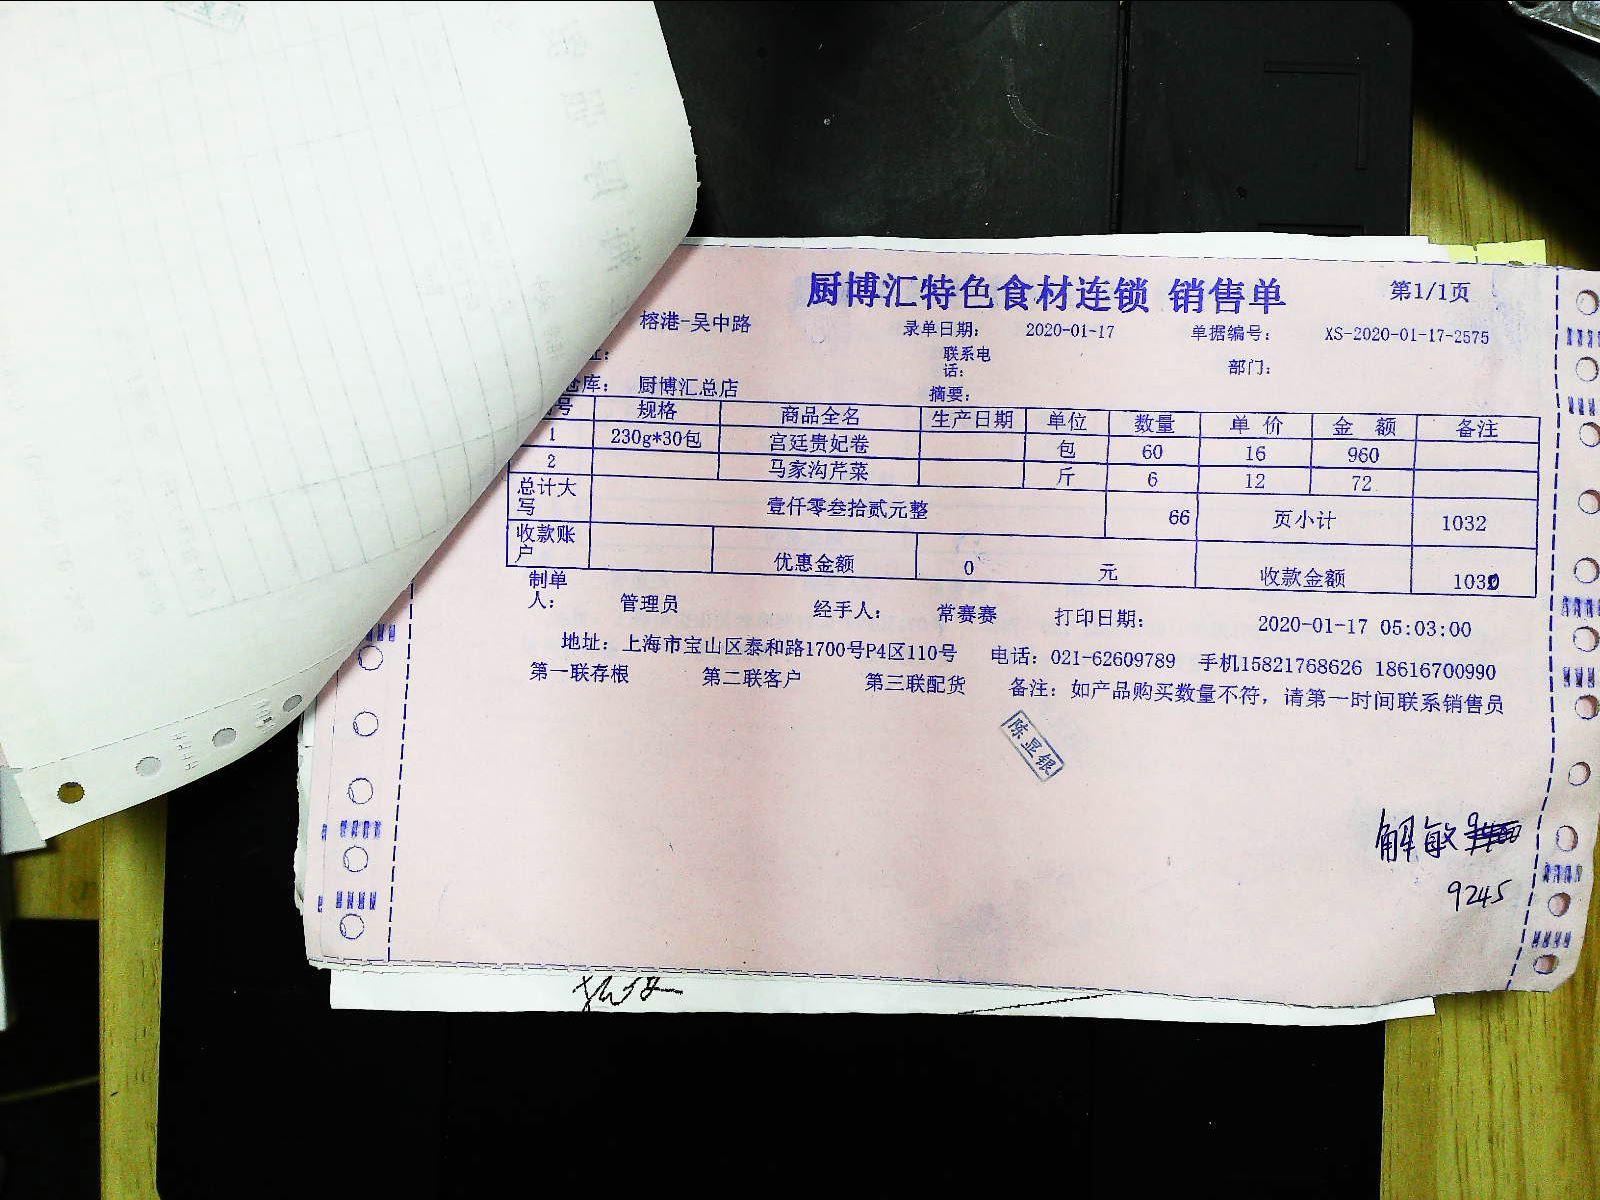 厨博汇特色食材连锁 销售单 第1/1页
榕港-吴中路 录单日期: 2020-01-17 单据编号: XS-2020-01-17-2575
址: 联系电话: 部门:
仓库: 厨博汇总店 摘要:
号 规格 商品全名 生产日期 单位 数量 单价 金额 备注
1 230g*30包 宫廷贵妃卷 包 60 16 960
2 马家沟芹菜 斤 6 12 72
总计大写 壹仟零叁拾贰元整 66 页小计 1032
收款账户 优惠金额 0 元 收款金额
制单人: 管理员 经手人: 常赛赛 打印日期: 2020-01-17 05:03:00
地址: 上海市宝山区泰和路1700号P4区110号 电话: 021-62609789 手机15821768626 18616700990
第一联存根 第二联客户 第三联配货 备注: 如产品购买数量不符, 请第一时间联系销售员
陈显银
解敏
9245